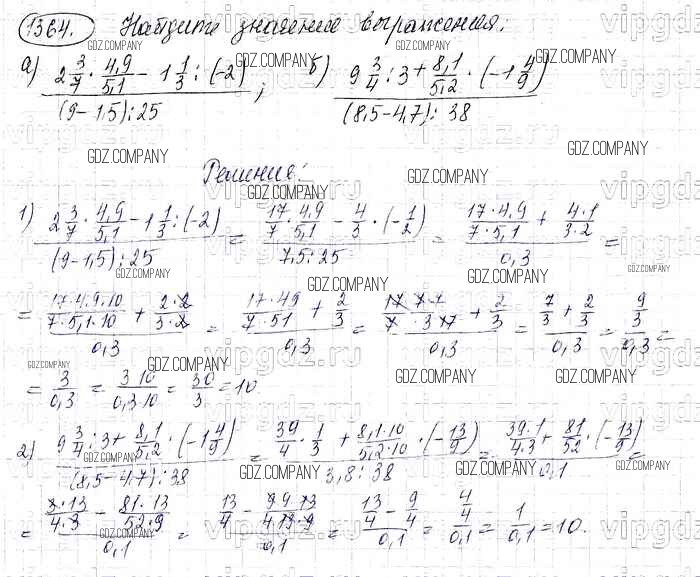 1364. Найдите значение выражения:
а) (2 3/7 · 4,9/5,1 − 1 1/3 : (−2)) / ((9−1,5) : 25) ; б) (9 3/4 : 3 + 8,1/5,2 · (−1 4/9)) / ((8,5−4,7) : 38)
Решение:
1) (2 3/7 · 4,9/5,1 − 1 1/3 : (−2)) / ((9−1,5) : 25) = (17/7 · 4,9/5,1 − 4/3 · (−1/2)) / (7,5 : 25) = ((17·4,9)/(7·5,1) + (4·1)/(3·2)) / 0,3 =
= ((17·4,9·10)/(7·5,1·10) + (2·2)/(3·2)) / 0,3 = ((17·49)/(7·51) + 2/3) / 0,3 = ((17·7·7)/(7·3·17) + 2/3) / 0,3 = (7/3 + 2/3) / 0,3 = (9/3) / 0,3 =
= 3/0,3 = (3·10)/(0,3·10) = 30/3 = 10
2) (9 3/4 : 3 + 8,1/5,2 · (−1 4/9)) / ((8,5−4,7) : 38) = (39/4 · 1/3 + (8,1·10)/(5,2·10) · (−13/9)) / (3,8 : 38) = ((39·1)/(4·3) + 81/52 · (−13/9)) / 0,1 =
= ((3·13)/(4·3) − (81·13)/(52·9)) / 0,1 = (13/4 − (9·9·13)/(4·13·9)) / 0,1 = (13/4 − 9/4) / 0,1 = (4/4) / 0,1 = 1/0,1 = 10.
GDZ.COMPANY
vipgdz.ru